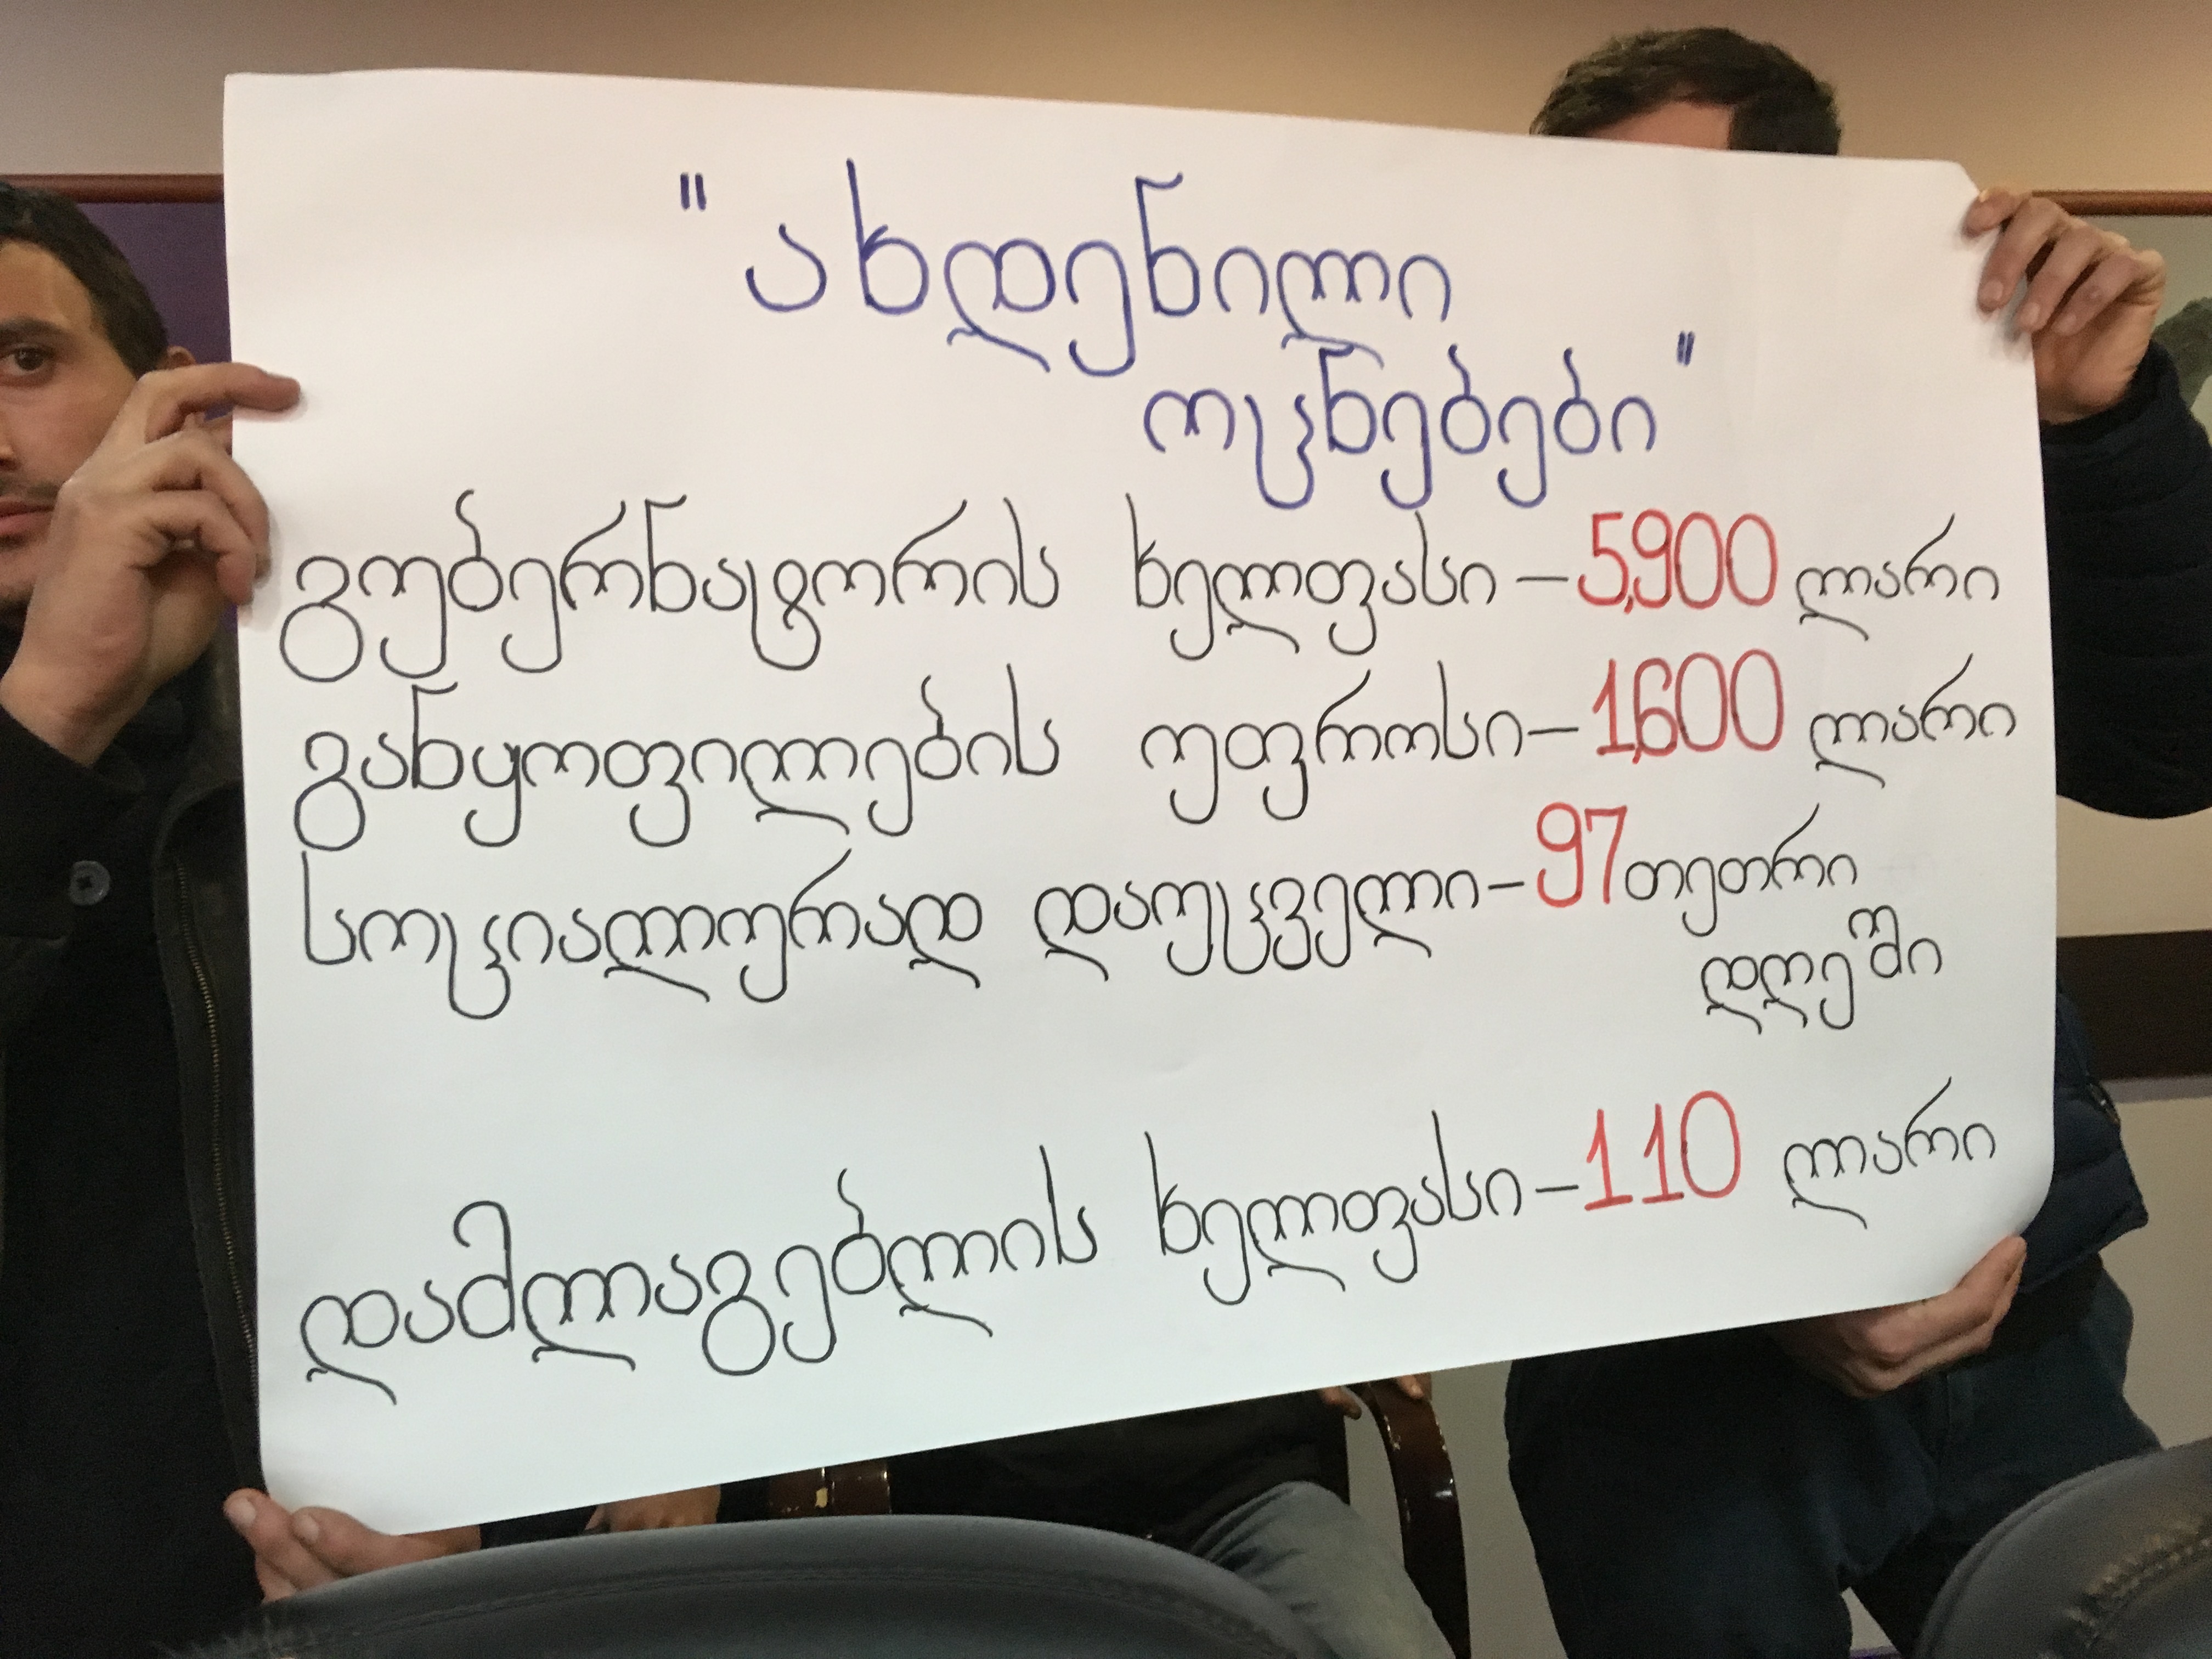 "ახდენილი
ოცნებები"
გუბერნატორის ხელფასი – 5,900 ლარი
განყოფილების უფროსი – 1,600 ლარი
სოციალურად დაუცველი – 97 თეთრი
დღეში
დამლაგებლის ხელფასი – 110 ლარი